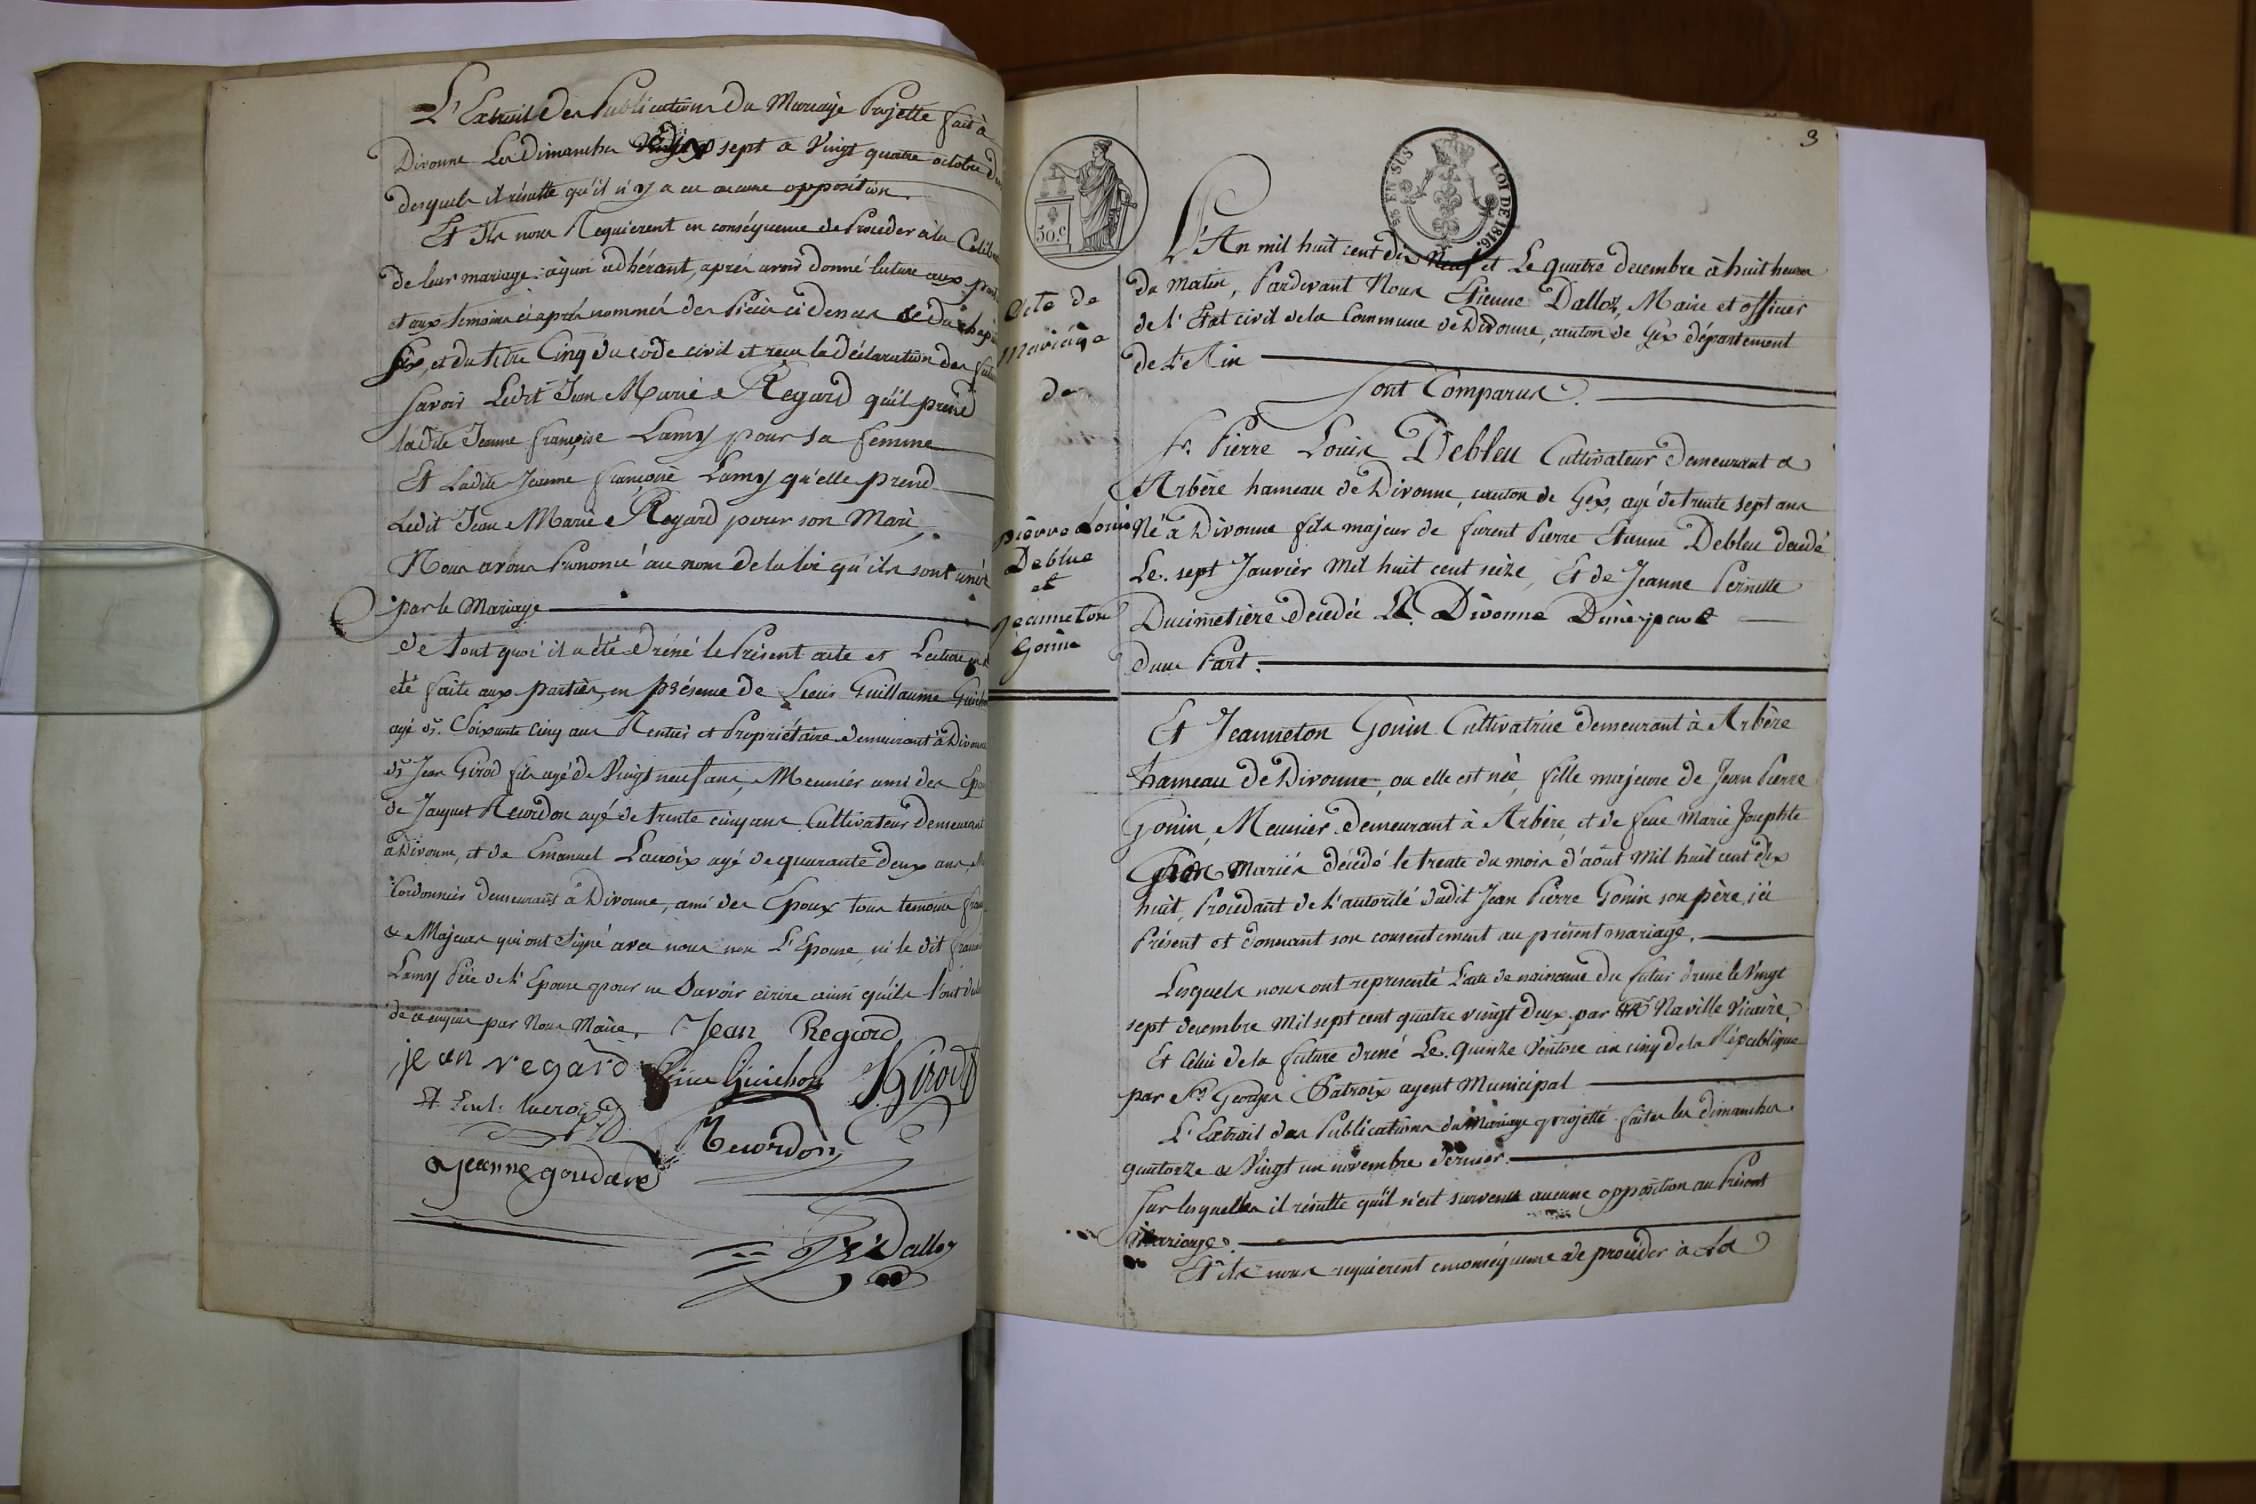 L'Extrait des Publications du Mariage Projetté fait à
Divonne Les Dimanches dix sept & Vingt quatre octobre
desquels il résulte qu'il n'y a eu aucune opposition.
Et Ils nous Requierent en conséquence de Proceder à la
de leur mariage. àquoi adhérant, après avoir donné lecture aux
et aux témoins ci après nommés des Pièces ci dessus & du
Six, et du titre Cinq du code civil et reçu la Déclaration des
Savoir Ledit Jean Marie Regard qu'il prend
ladite Jeanne françoise Lamy pour sa femme
Et Ladite Jeanne françoise Lamy qu'elle prend
Ledit Jean Marie Regard pour son Mari
Nous avons Prononcé au nom de la loi qu'ils sont unis
par le Mariage
de tout quoi il a été Dréssé le Présent acte et Lecture
été faite aux parties, en présence de Louis Guillaume
agé de Soixante cinq ans Rentier et Propriétaire demeurant à Divonne
de Jean Girod fils agé de Vingt neuf ans, Meunier ami des
de Jacques Recordon agé de trente cinq ans Cultivateur Demeurant
à Divonne, et de Emanuel Lacroix agé de quarante deux ans,
Cordonnier demeurant à Divonne, ami des Epoux tous temoins
& Majeurs qui ont Signé avec nous non L'Epouse ni le dit
Lamy Père de l'Epouse pour ne Savoir écrire ainsi qu'ils l'ont
de ce enquis par Nous Maire. Jean Regard
jean regard Guichon J Girod
Et Lacroix
Recordon
jeanne goudard
Dalloz
3
50.c
EN SUS LOI DE 1816.
Acte de
Mariage
de
pierre Louis
Deblue
et
Jeanneton
Gonin
L'An mil huit cent dix Neuf et Le quatre decembre à huit heures
du Matin, Pardevant Nous Etienne Dalloz, Maire et officier
de l'Etat civil de la Commune de Divonne, canton de Gex département
de l'Ain
Sont Comparus.
Sr. Pierre Louis Debleu Cultivateur Demeurant a
Arbère hameau de Divonne, canton de Gex, agé de trente sept ans
Né à Divonne fils majeur de furent Pierre Etienne Debleu decedé
Le sept Janvier Mil huit cent seize, Et de Jeanne Pernette
Ducimetière decedée à Divonne
Dune Part.
Et Jeanneton Gonin Cultivatrice demeurant à Arbère
hameau de Divonne, ou elle est née, fille majeure de Jean Pierre
Gonin, Meunier demeurant à Arbère, et de feue Marie Josephte
Mariés décédé le trente du mois d'août Mil huit cent dix
huit, Procedant de l'autorité dudit Jean Pierre Gonin son père, ici
Présent et donnant son consentement au présent mariage.
Lesquels nous ont representé L'acte de naissance du futur dressé le Vingt
sept decembre Mil sept cent quatre vingt Deux par Naville Vicaire,
Et Celui de la future dressé Le quinze Ventose an cinq de la République
par Sr. Georges Patroix agent Municipal
L'Extrait des Publications du Mariage projetté faites les dimanches
quatorze & Vingt un novembre dernier.
Sur lesquelles il résulte qu'il n'est survenu aucune opposition au Présent
Mariage.
Et ils nous requierent enconséquence de procéder à la